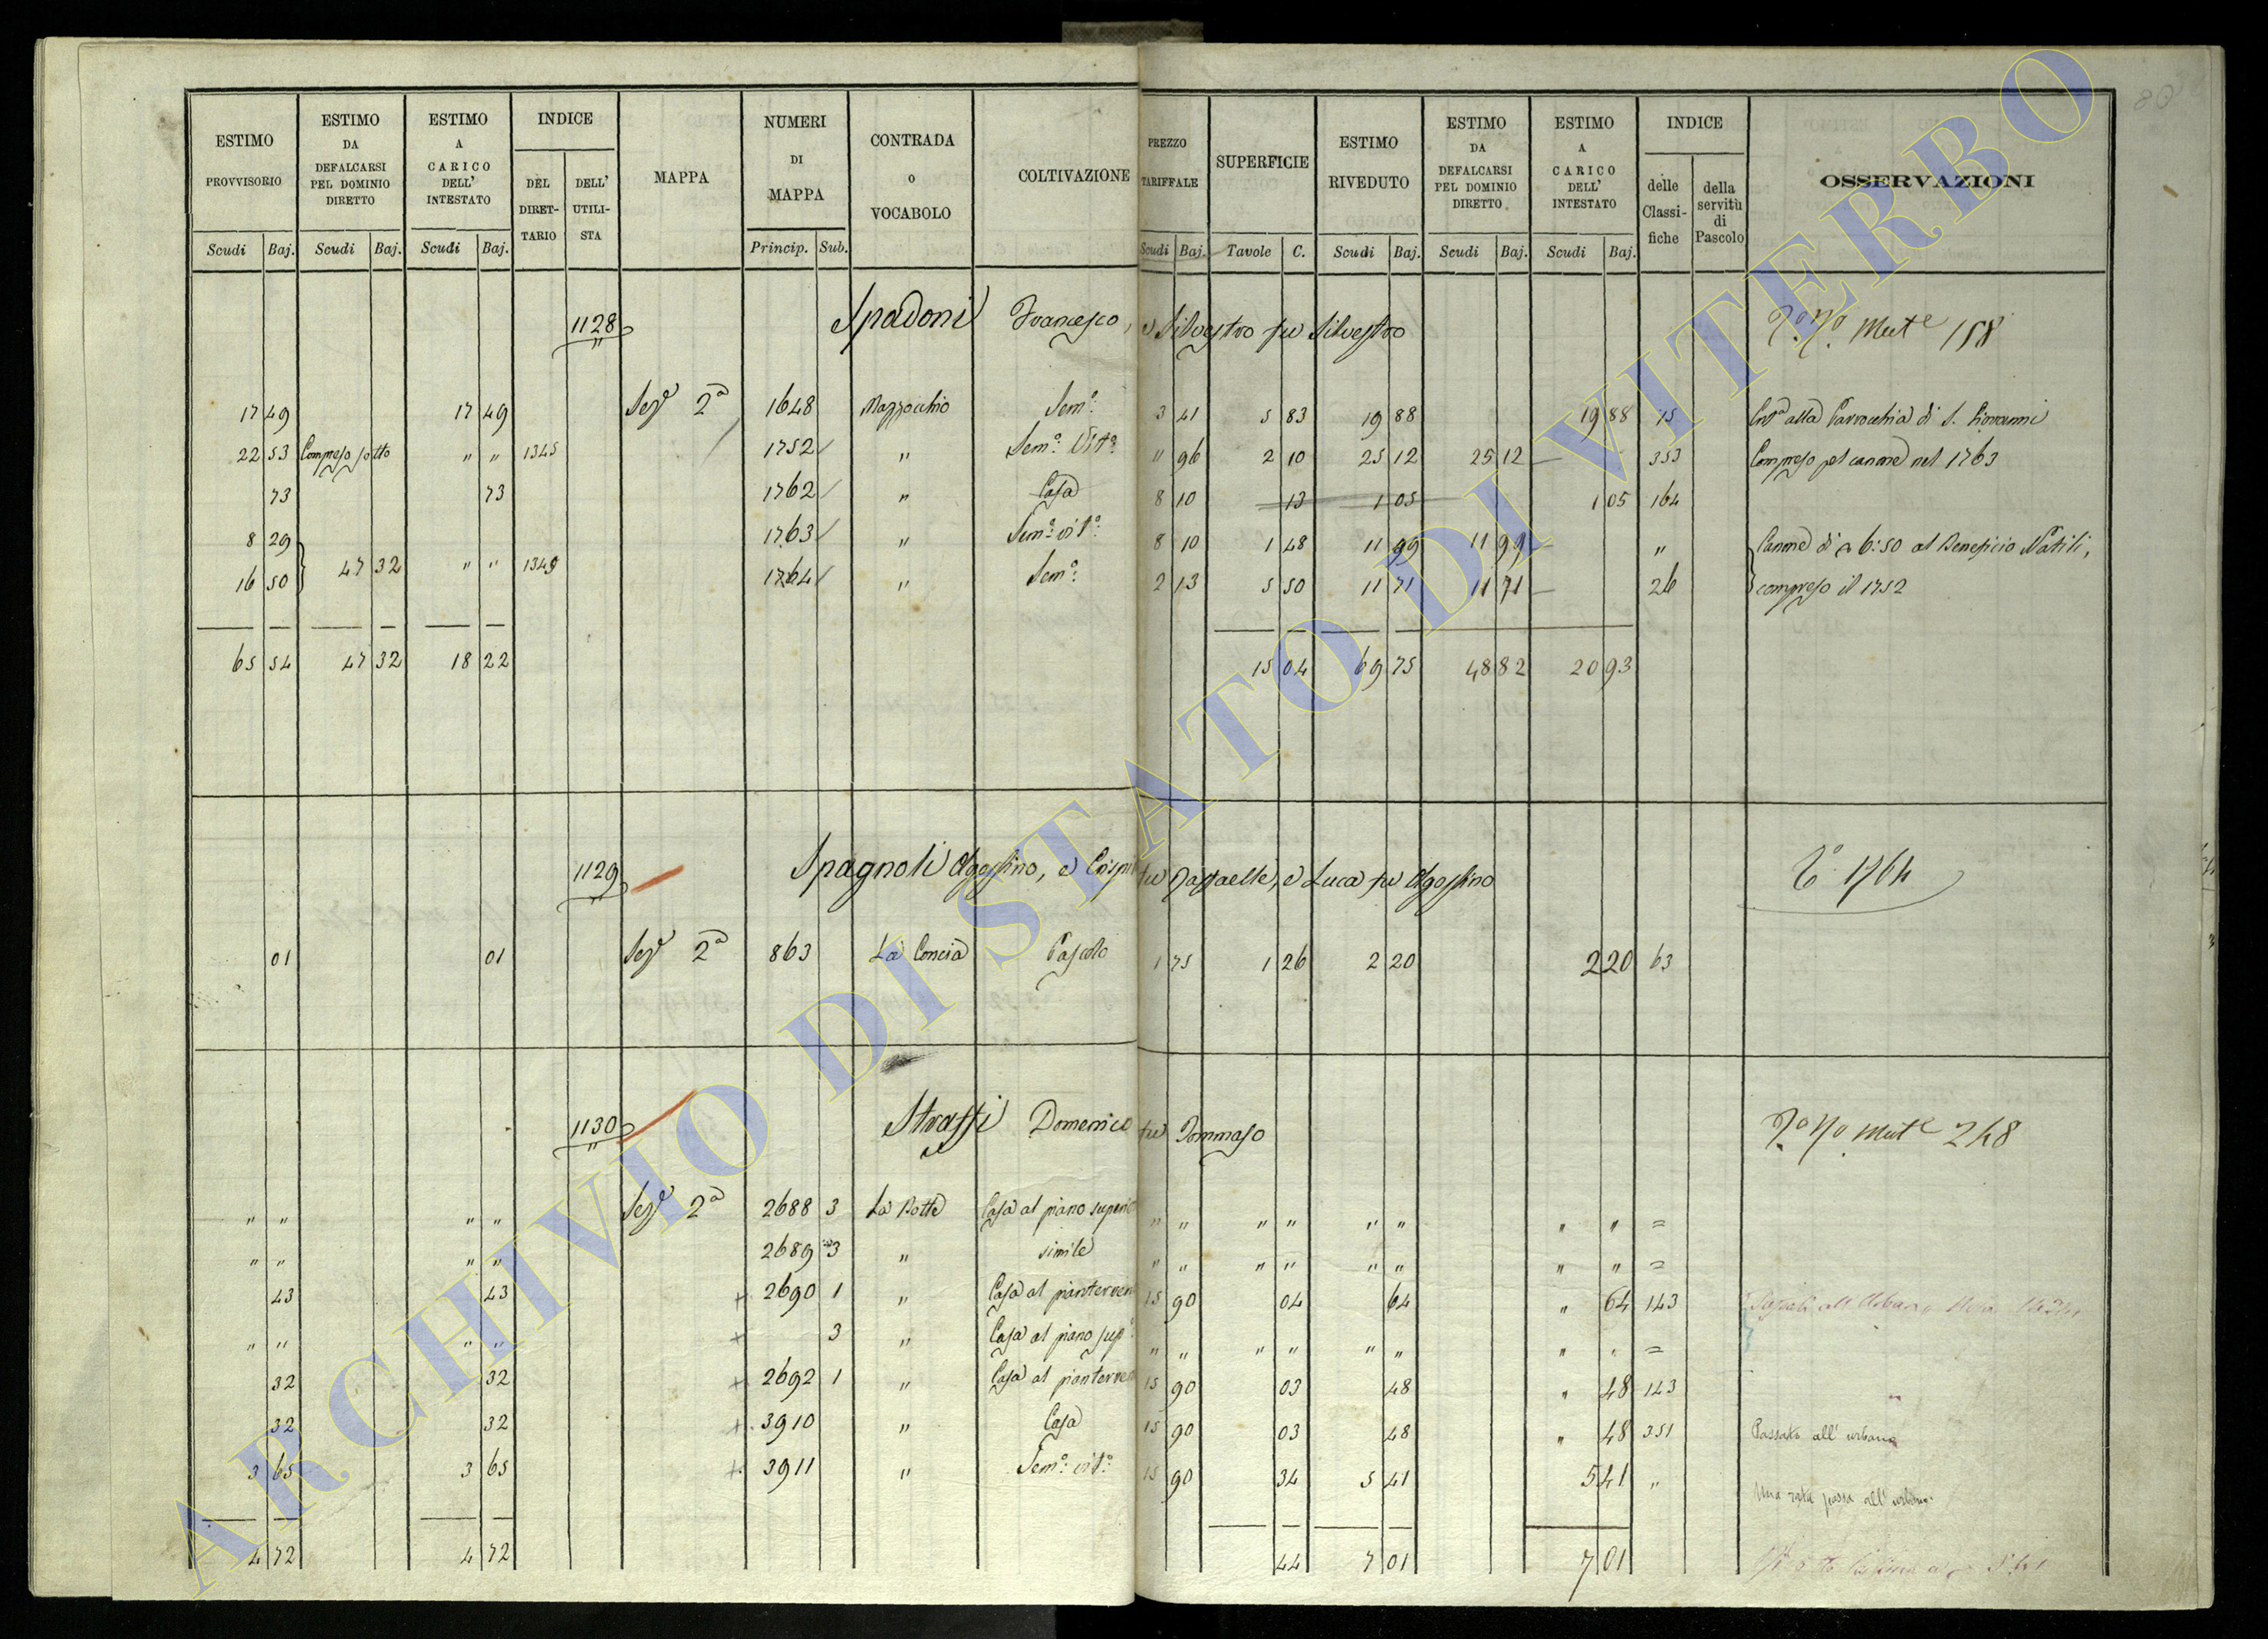 80
ESTIMO PROVVISORIO
ESTIMO DA DEFALCARSI PEL DOMINIO DIRETTO
ESTIMO A CARICO DELL' INTESTATO
INDICE
DEL DIRET-TARIO
DELL' UTILI-STA
MAPPA
NUMERI DI MAPPA
CONTRADA O VOCABOLO
COLTIVAZIONE
PREZZO TARIFFALE
SUPERFICIE
ESTIMO RIVEDUTO
ESTIMO DA DEFALCARSI PEL DOMINIO DIRETTO
ESTIMO A CARICO DELL' INTESTATO
INDICE
delle Classi-fiche
della servitù di Pascolo
OSSERVAZIONI
Scudi Baj. Scudi Baj. Scudi Baj. Princip. Sub. Scudi Baj. Tavole C. Scudi Baj. Scudi Baj. Scudi Baj.
1128 Spadoni Francesco, e Silvestro fu Silvestro 158
17 49 17 49 Sez.e 2a 1648 Mazzocchio Sem.o 3 41 5 83 19 88 19 88 15 alla Parrocchia di S. Giovanni
22 53 Compreso sotto " " 1345 1752 " Sem.o Vit.o " 96 2 10 25 12 25 12 — 353 Compreso pel canone nel 1763
73 73 1762 " Casa 8 10 13 1 05 1 05 164
8 29 1763 " Sem.o vit.o 8 10 1 48 11 99 11 99 — " Canone di 6:50 al Beneficio Natili,
16 50 47 32 " " 1349 1764 " Sem.o 2 13 5 50 11 71 11 71 — 26 compreso il 1752
65 54 47 32 18 22 15 04 69 75 48 82 20 93
1129 Spagnoli Agostino, e Crispi fu Raffaelle, e Luca fu Agostino 1764
01 01 Sez.e 2a 863 La Concia Pascolo 1 75 1 26 2 20 2 20 63
1130 Strassi Domenico fu Tommaso 248
" " " " Sez.e 2a 2688 3 La Botte Casa al piano superio " " " " " " " " =
" " " " 2689 3 " simile " " " " " " " " =
43 43 + 2690 1 " Casa al pianterren 15 90 04 64 " 64 143
" " " " + 3 " Casa al piano sup.e " " " " " " " " =
32 32 + 2692 1 " Casa al pianterren 15 90 03 48 " 48 143
32 32 + 3910 " Casa 15 90 03 48 " 48 351 Passata all' urbano
3 65 3 65 + 3911 " Sem.o vit.o 15 90 34 5 41 5 41 " Una rata passa all' urbano.
4 72 4 72 44 7 01 7 01
ARCHIVIO DI STATO DI VITERBO